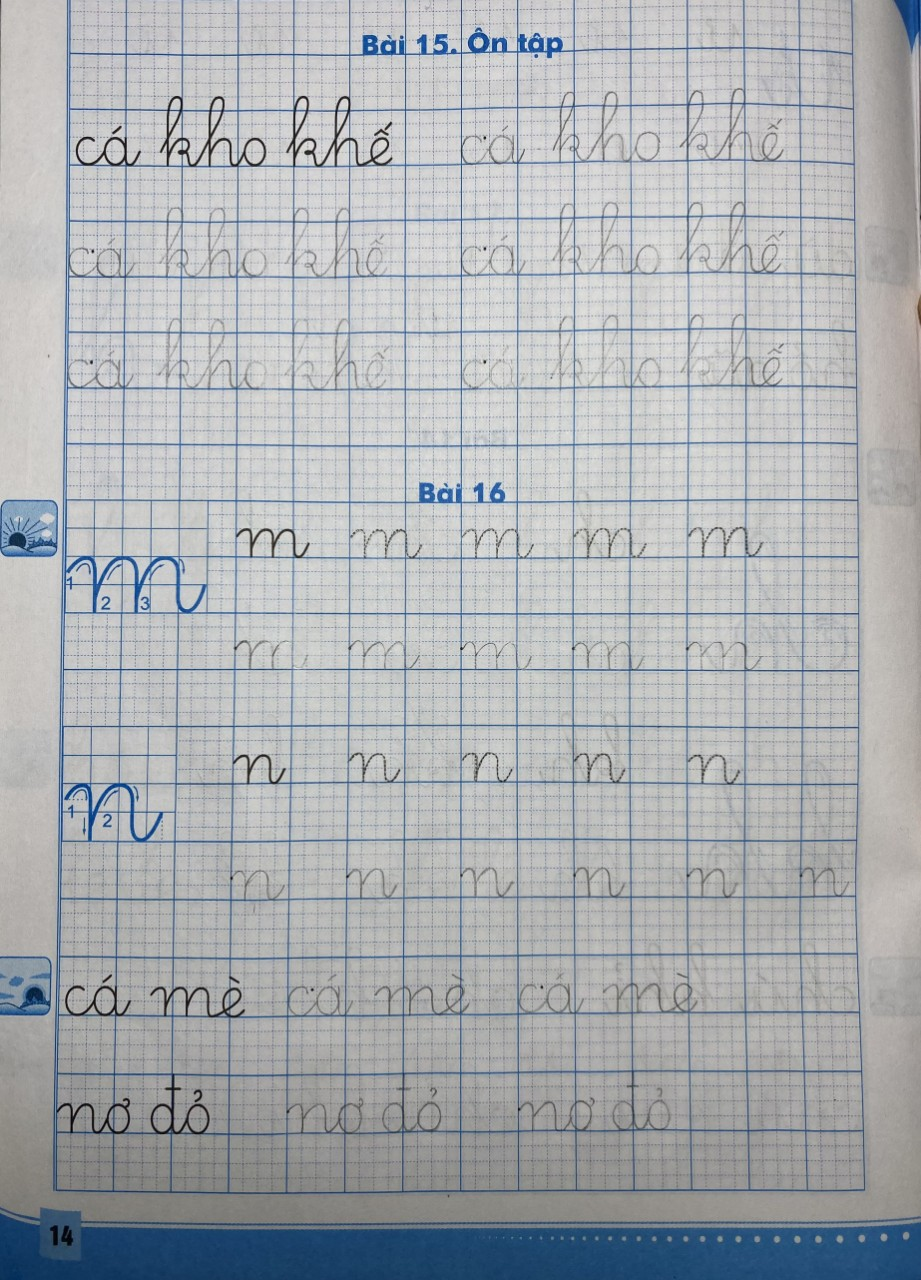 Bài 15. Ôn tập
cá kho khế cá kho khế
cá kho khế cá kho khế
cá kho khế cá kho khế
Bài 16
m m m m m
m 1 2 3
m m m m m
n n n n n
n 1 2
n n n n n n
cá mè cá mè cá mè
nơ đỏ nơ đỏ nơ đỏ
14